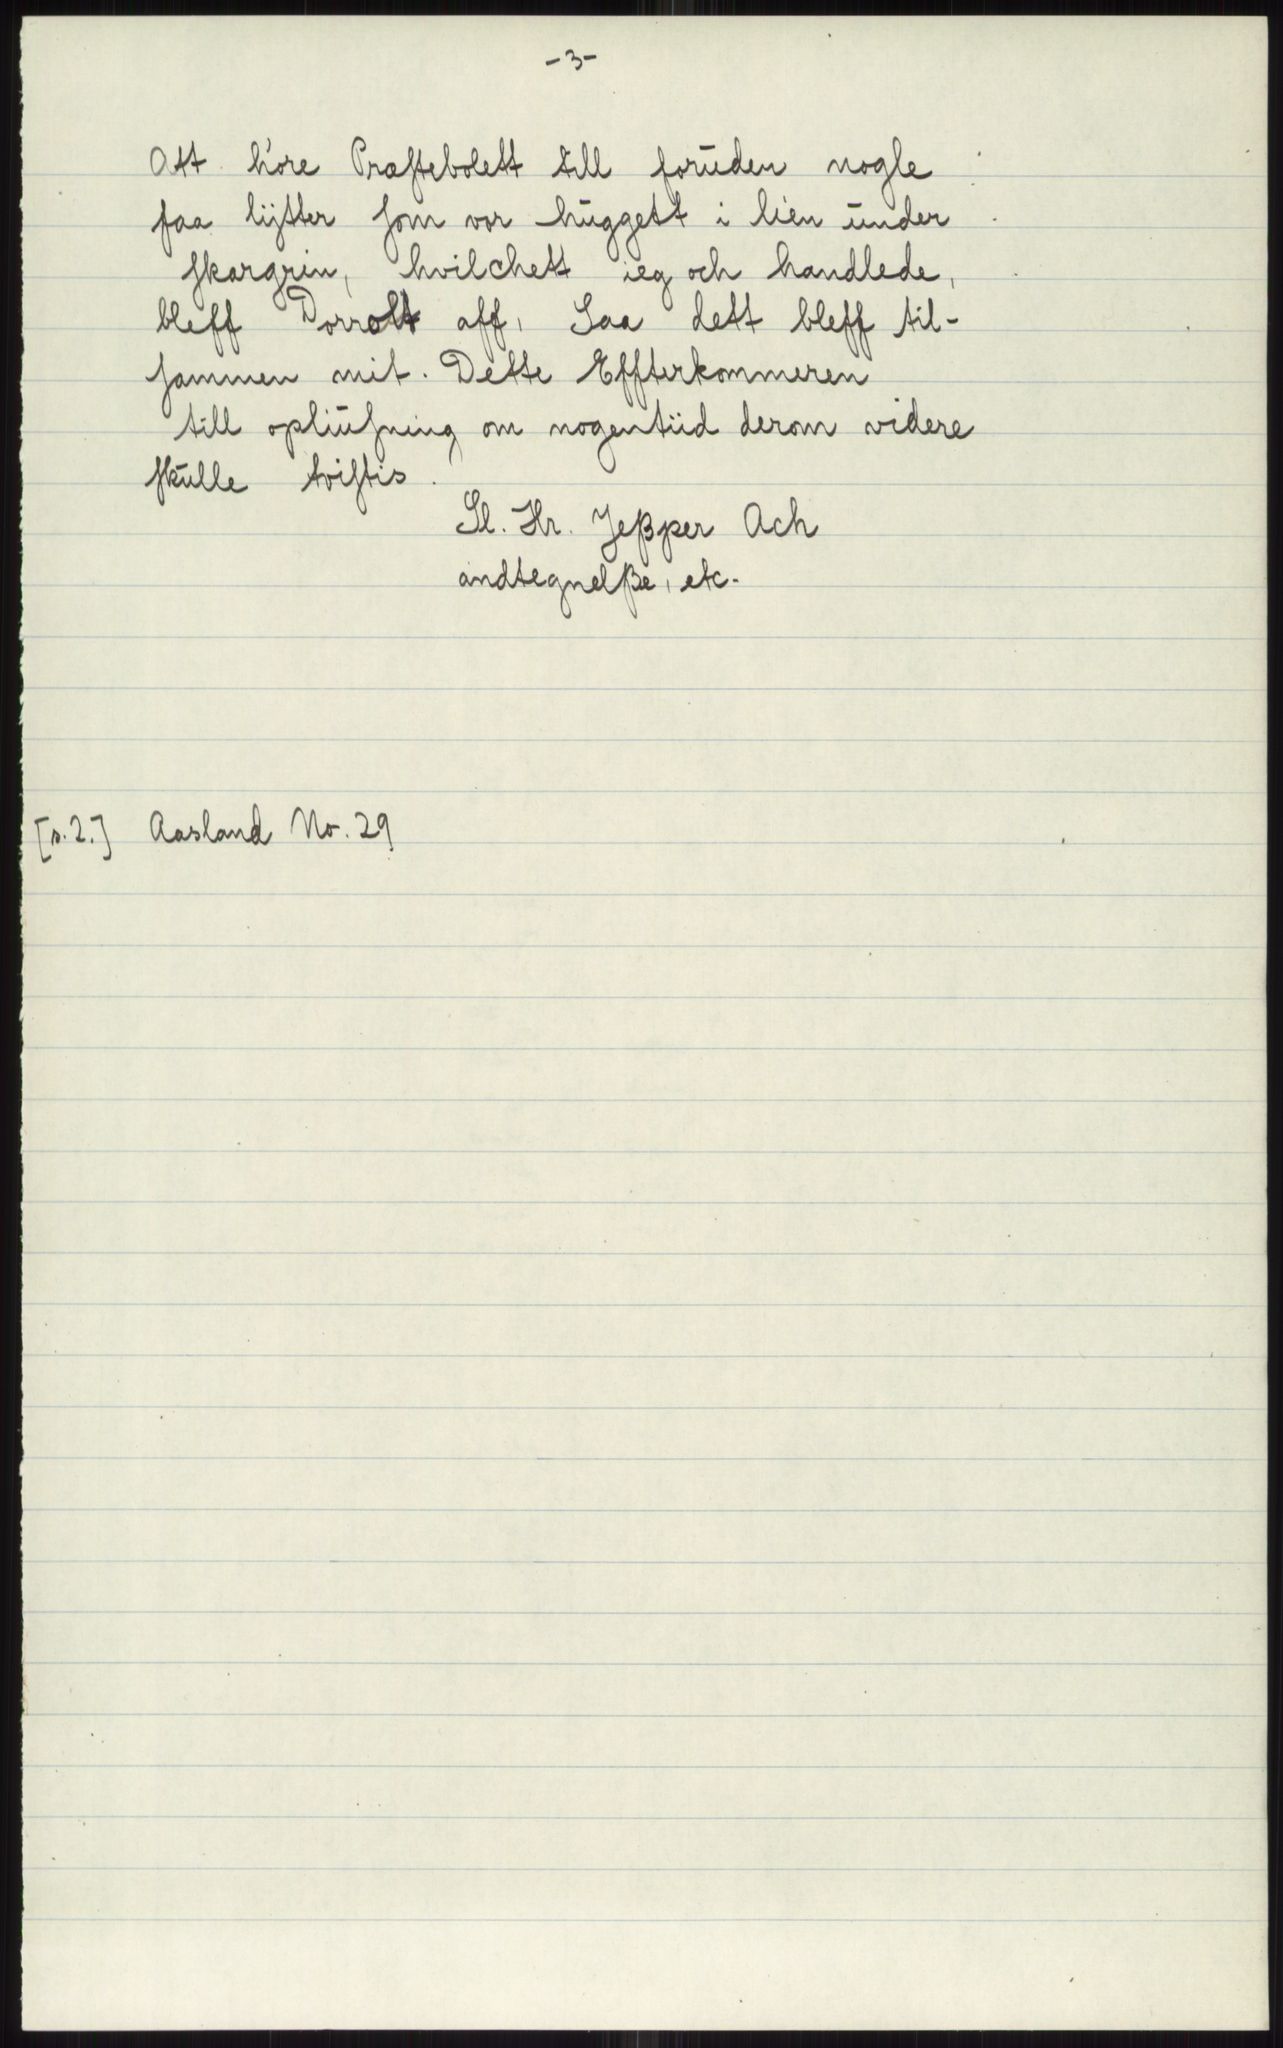 -3-
Att höre Præstebolett till foruden nogle
faa lÿtter som vor huggett i lien under
skargrin, hvilchett ieg och handlede,
bleff Dorrott aff, Saa dett bleff til-
sammen mit. Dette Effterkommeren
till opliusning om nogentiid derom videre
skulle tvistis.
Sl. Hr. Jeßper Ach
andtegnelße, etc.
[s.2.] Aasland No. 29